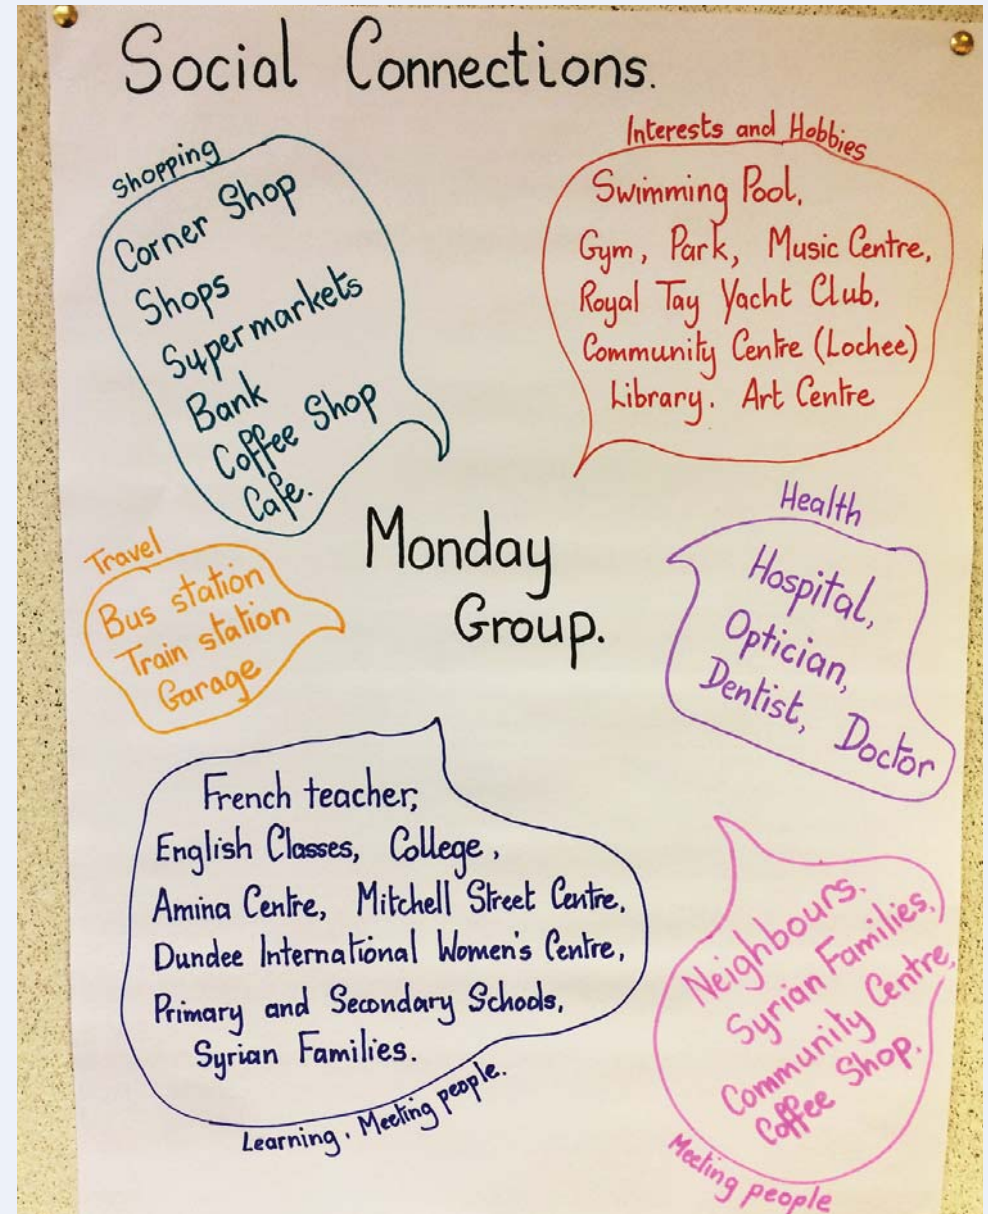 Social Connections.
Shopping
Corner Shop
Shops
Supermarkets
Bank
Coffee Shop
Cafe.
Interests and Hobbies
Swimming Pool,
Gym, Park, Music Centre,
Royal Tay Yacht Club,
Community Centre (Lochee)
Library. Art Centre
Travel
Bus station
Train station
Garage
Monday
Group.
Health
Hospital,
Optician,
Dentist, Doctor
French teacher,
English Classes, College,
Amina Centre, Mitchell Street Centre,
Dundee International Women's Centre,
Primary and Secondary Schools,
Syrian Families.
Learning, Meeting people.
Neighbours.
Syrian Families,
Community Centre,
Coffee Shop.
Meeting people